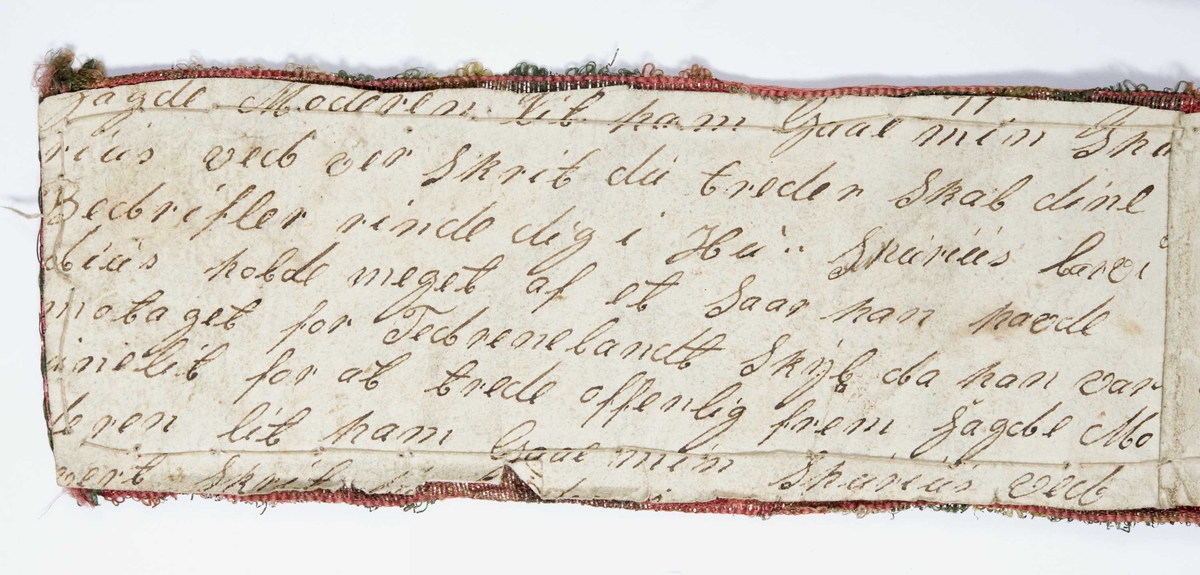 Sagde Moderen til ham Gaae min Sku
rius ved ver Skrit du treder Skab dine
Bedrifter rinde dig i Hu:- Skurius Carvi
lius holde meget af et Saar han havde
motaget for Fedrenelandt Skÿlt da han var
inelit for at trede offenlig frem Sagde Mo
deren lit ham Gaae min Skurius ved
vert Skrit